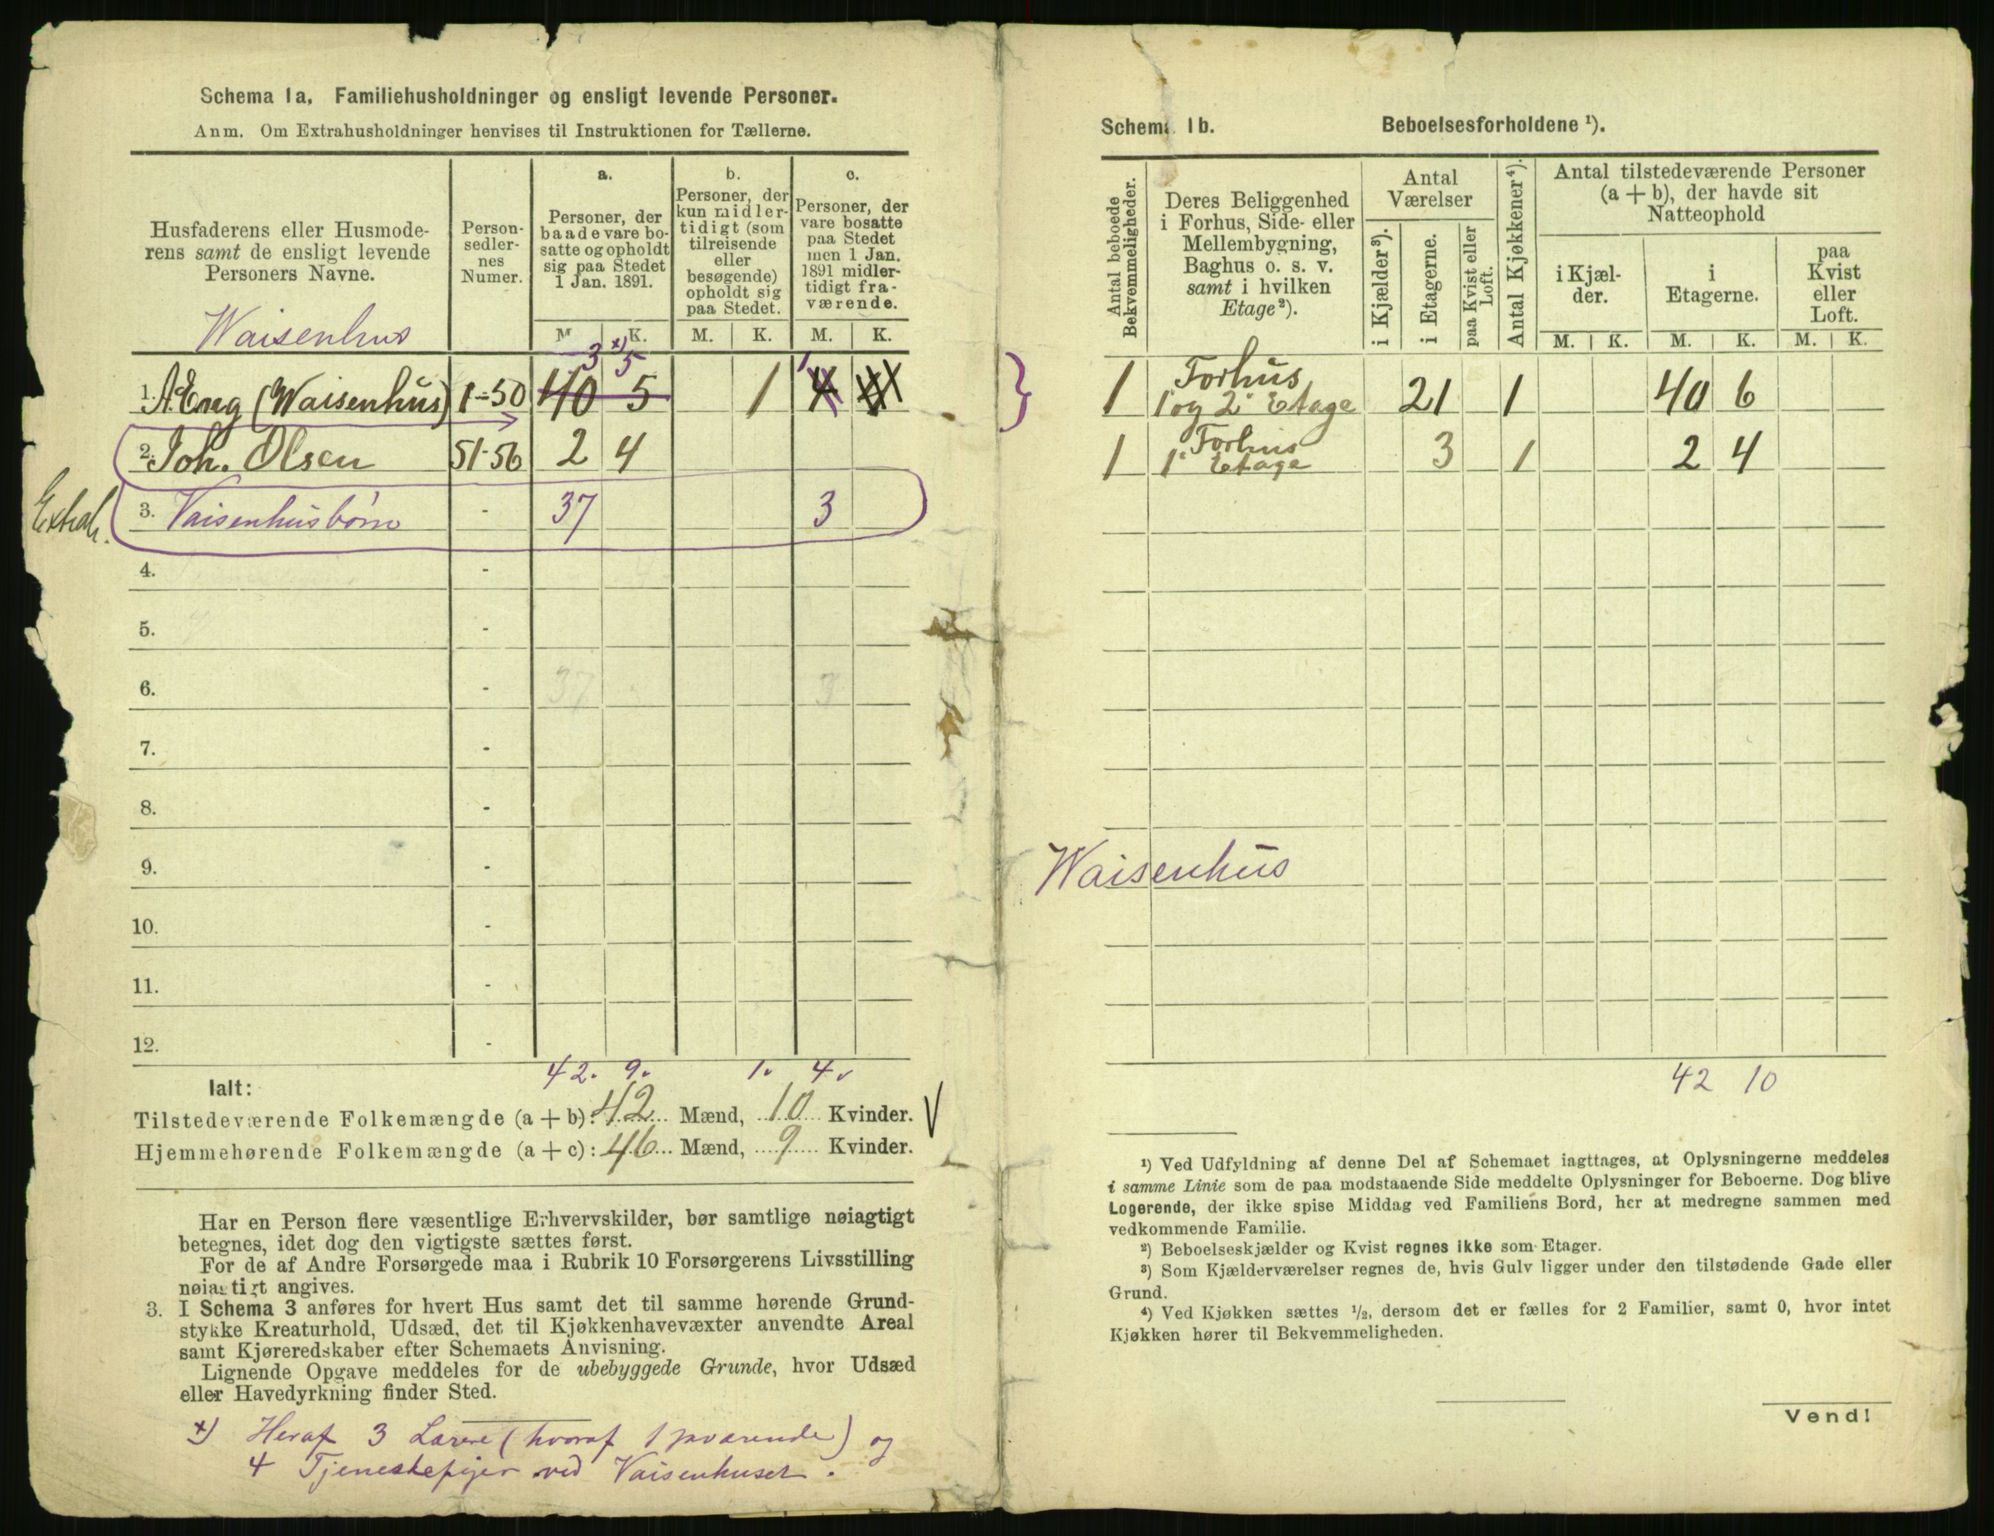 Schema 1a, Familiehusholdninger og ensligt levende Personer.
Anm. Om Extrahusholdninger henvises til Instruktionen for Tællerne.
Husfaderens eller Husmode-
rens samt de ensligt levende
Personers Navne.
Waisenhus
Person-
sedler-
nes
Numer.
a.
Personer, der
baade vare bo-
satte og opholdt
sig paa Stedet
1 Jan. 1891.
M. K.
b.
Personer, der
kun midler-
tidigt (som
tilreisende
eller
besøgende)
opholdt sig
paa Stedet.
M. K.
c.
Personer, der
vare bosatte
paa Stedet
men 1 Jan.
1891 midler-
tidigt fra-
værende.
M. K.
3 x) 5 1
1. A. Eng (Waisenhus) 1-50 40 5 1 4
2. Joh. Olsen 51-56 2 4
Extrah.
3. Vaisenhusbørn - 37 3
4. -
5. -
6. - 37 3
7. -
8. -
9. -
10. -
11. -
12. -
42. 9. 1. 4.
Ialt:
Tilstedeværende Folkemængde (a + b): 42 Mænd, 10 Kvinder. V
Hjemmehørende Folkemængde (a + c): 46 Mænd, 9 Kvinder.
Har en Person flere væsentlige Erhvervskilder, bør samtlige nøiagtigt
betegnes, idet dog den vigtigste sættes først.
For de af Andre Forsørgede maa i Rubrik 10 Forsørgerens Livsstilling
nøiagtigt angives.
3. I Schema 3 anføres for hvert Hus samt det til samme hørende Grund-
stykke Kreaturhold, Udsæd, det til Kjøkkenhavevæxter anvendte Areal
samt Kjøreredskaber efter Schemaets Anvisning.
Lignende Opgave meddeles for de ubebyggede Grunde, hvor Udsæd
eller Havedyrkning finder Sted.
x) Heraf 3 Lærere (hvoraf 1 fraværende) og
4 Tjenestepiger ved Vaisenhuset.
Schema 1b. Beboelsesforholdene ¹).
Antal beboede
Bekvemmeligheder.
Deres Beliggenhed
i Forhus, Side- eller
Mellembygning,
Baghus o. s. v.
samt i hvilken
Etage²).
Antal
Værelser
i Kjælder³).
i Etagerne.
paa Kvist eller
Loft.
Antal Kjøkkener⁴).
Antal tilstedeværende Personer
(a + b), der havde sit
Natteophold
i Kjæl-
der.
i
Etagerne.
paa
Kvist
eller
Loft.
M. K. M. K. M. K.
1 Forhus
1 og 2 Etage 21 1 40 6
1 Forhus
1 Etage 3 1 2 4
Waisenhus
42 10
¹) Ved Udfyldning af denne Del af Schemaet iagttages, at Oplysningerne meddeles
i samme Linie som de paa modstaaende Side meddelte Oplysninger for Beboerne. Dog blive
Logerende, der ikke spise Middag ved Familiens Bord, her at medregne sammen med
vedkommende Familie.
²) Beboelseskjælder og Kvist regnes ikke som Etager.
³) Som Kjælderværelser regnes de, hvis Gulv ligger under den tilstødende Gade eller
Grund.
⁴) Ved Kjøkken sættes ½, dersom det er fælles for 2 Familier, samt 0, hvor intet
Kjøkken hører til Bekvemmeligheden.
Vend!